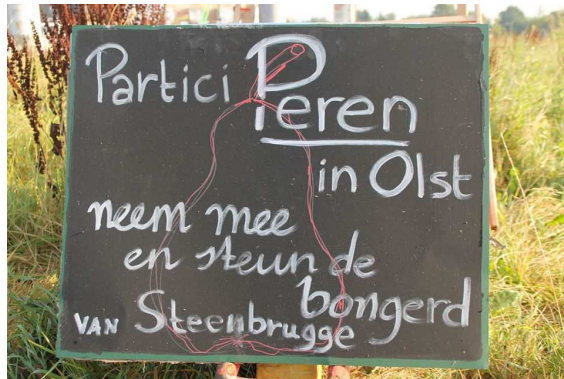 Partici Peren
in Olst
neem mee
en steun de
bongerd
van Steenbrugge